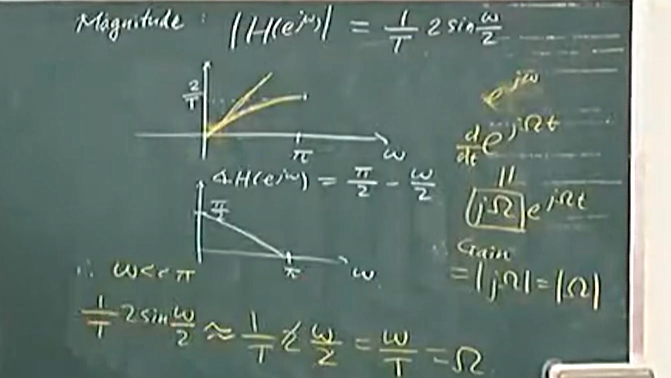 Magnitude: |H(e^{jω})| = 1/T 2 sin ω/2
2/T
π
ω
∡H(e^{jω}) = π/2 - ω/2
π/2
π
ω
∴ ω << π
1/T 2 sin ω/2 ≈ 1/T 2 ω/2 = ω/T = Ω
e^{jω}
d/dt e^{jΩt}
||
(jΩ) e^{jΩt}
Gain
= |jΩ| = |Ω|